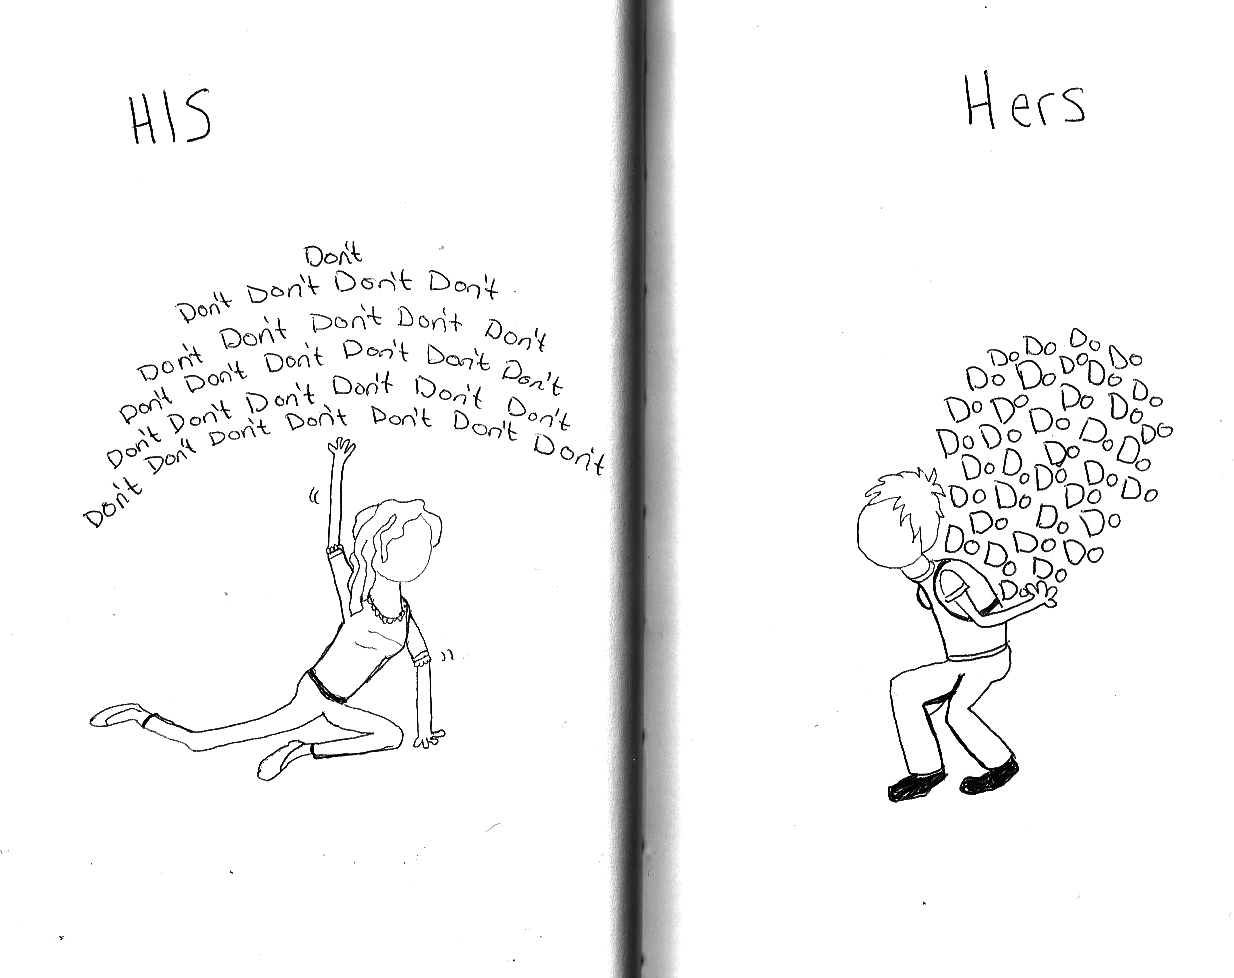 HIS
Don't
Don't Don't Don't Don't
Don't Don't Don't Don't Don't
Don't Don't Don't Don't Don't Don't
Don't Don't Don't Don't Don't Don't
Don't Don't Don't Don't Don't Don't Don't
Hers
Do Do Do Do
Do Do Do Do Do
Do Do Do Do
Do Do Do Do Do
Do Do Do Do
Do Do Do Do Do Do
Do Do Do
Do Do Do Do
Do
Do